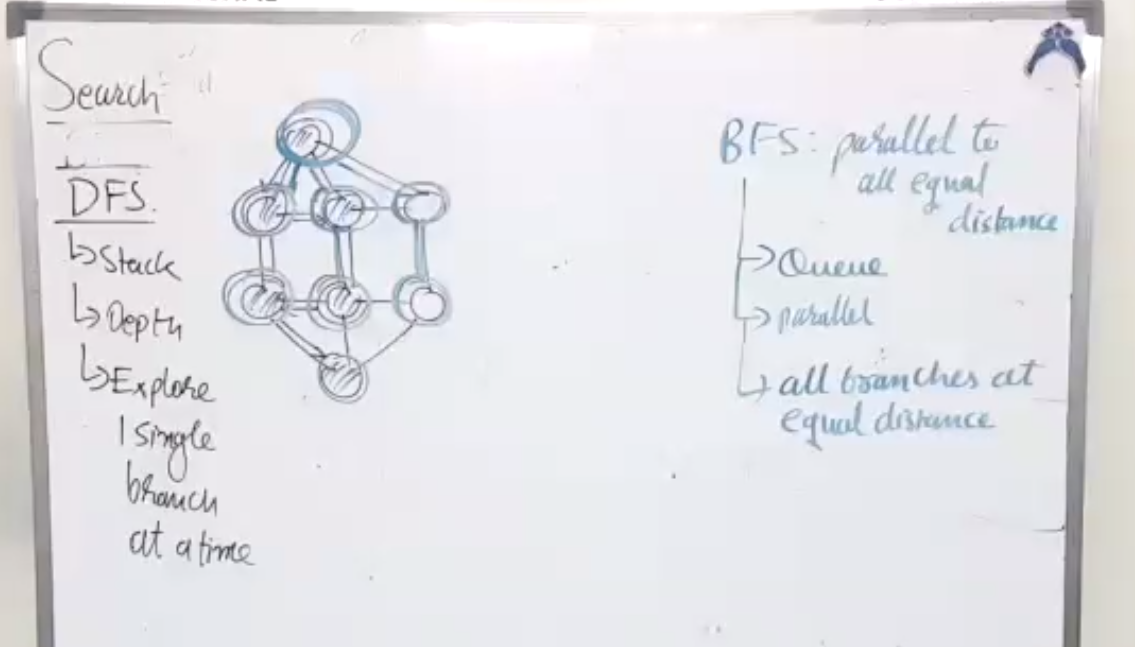 Search
DFS.
↳ Stack
↳ Depth
↳ Explore
1 single
branch
at a time
BFS: parallel to
all equal
distance
→ Queue
→ parallel
↳ all branches at
equal distance